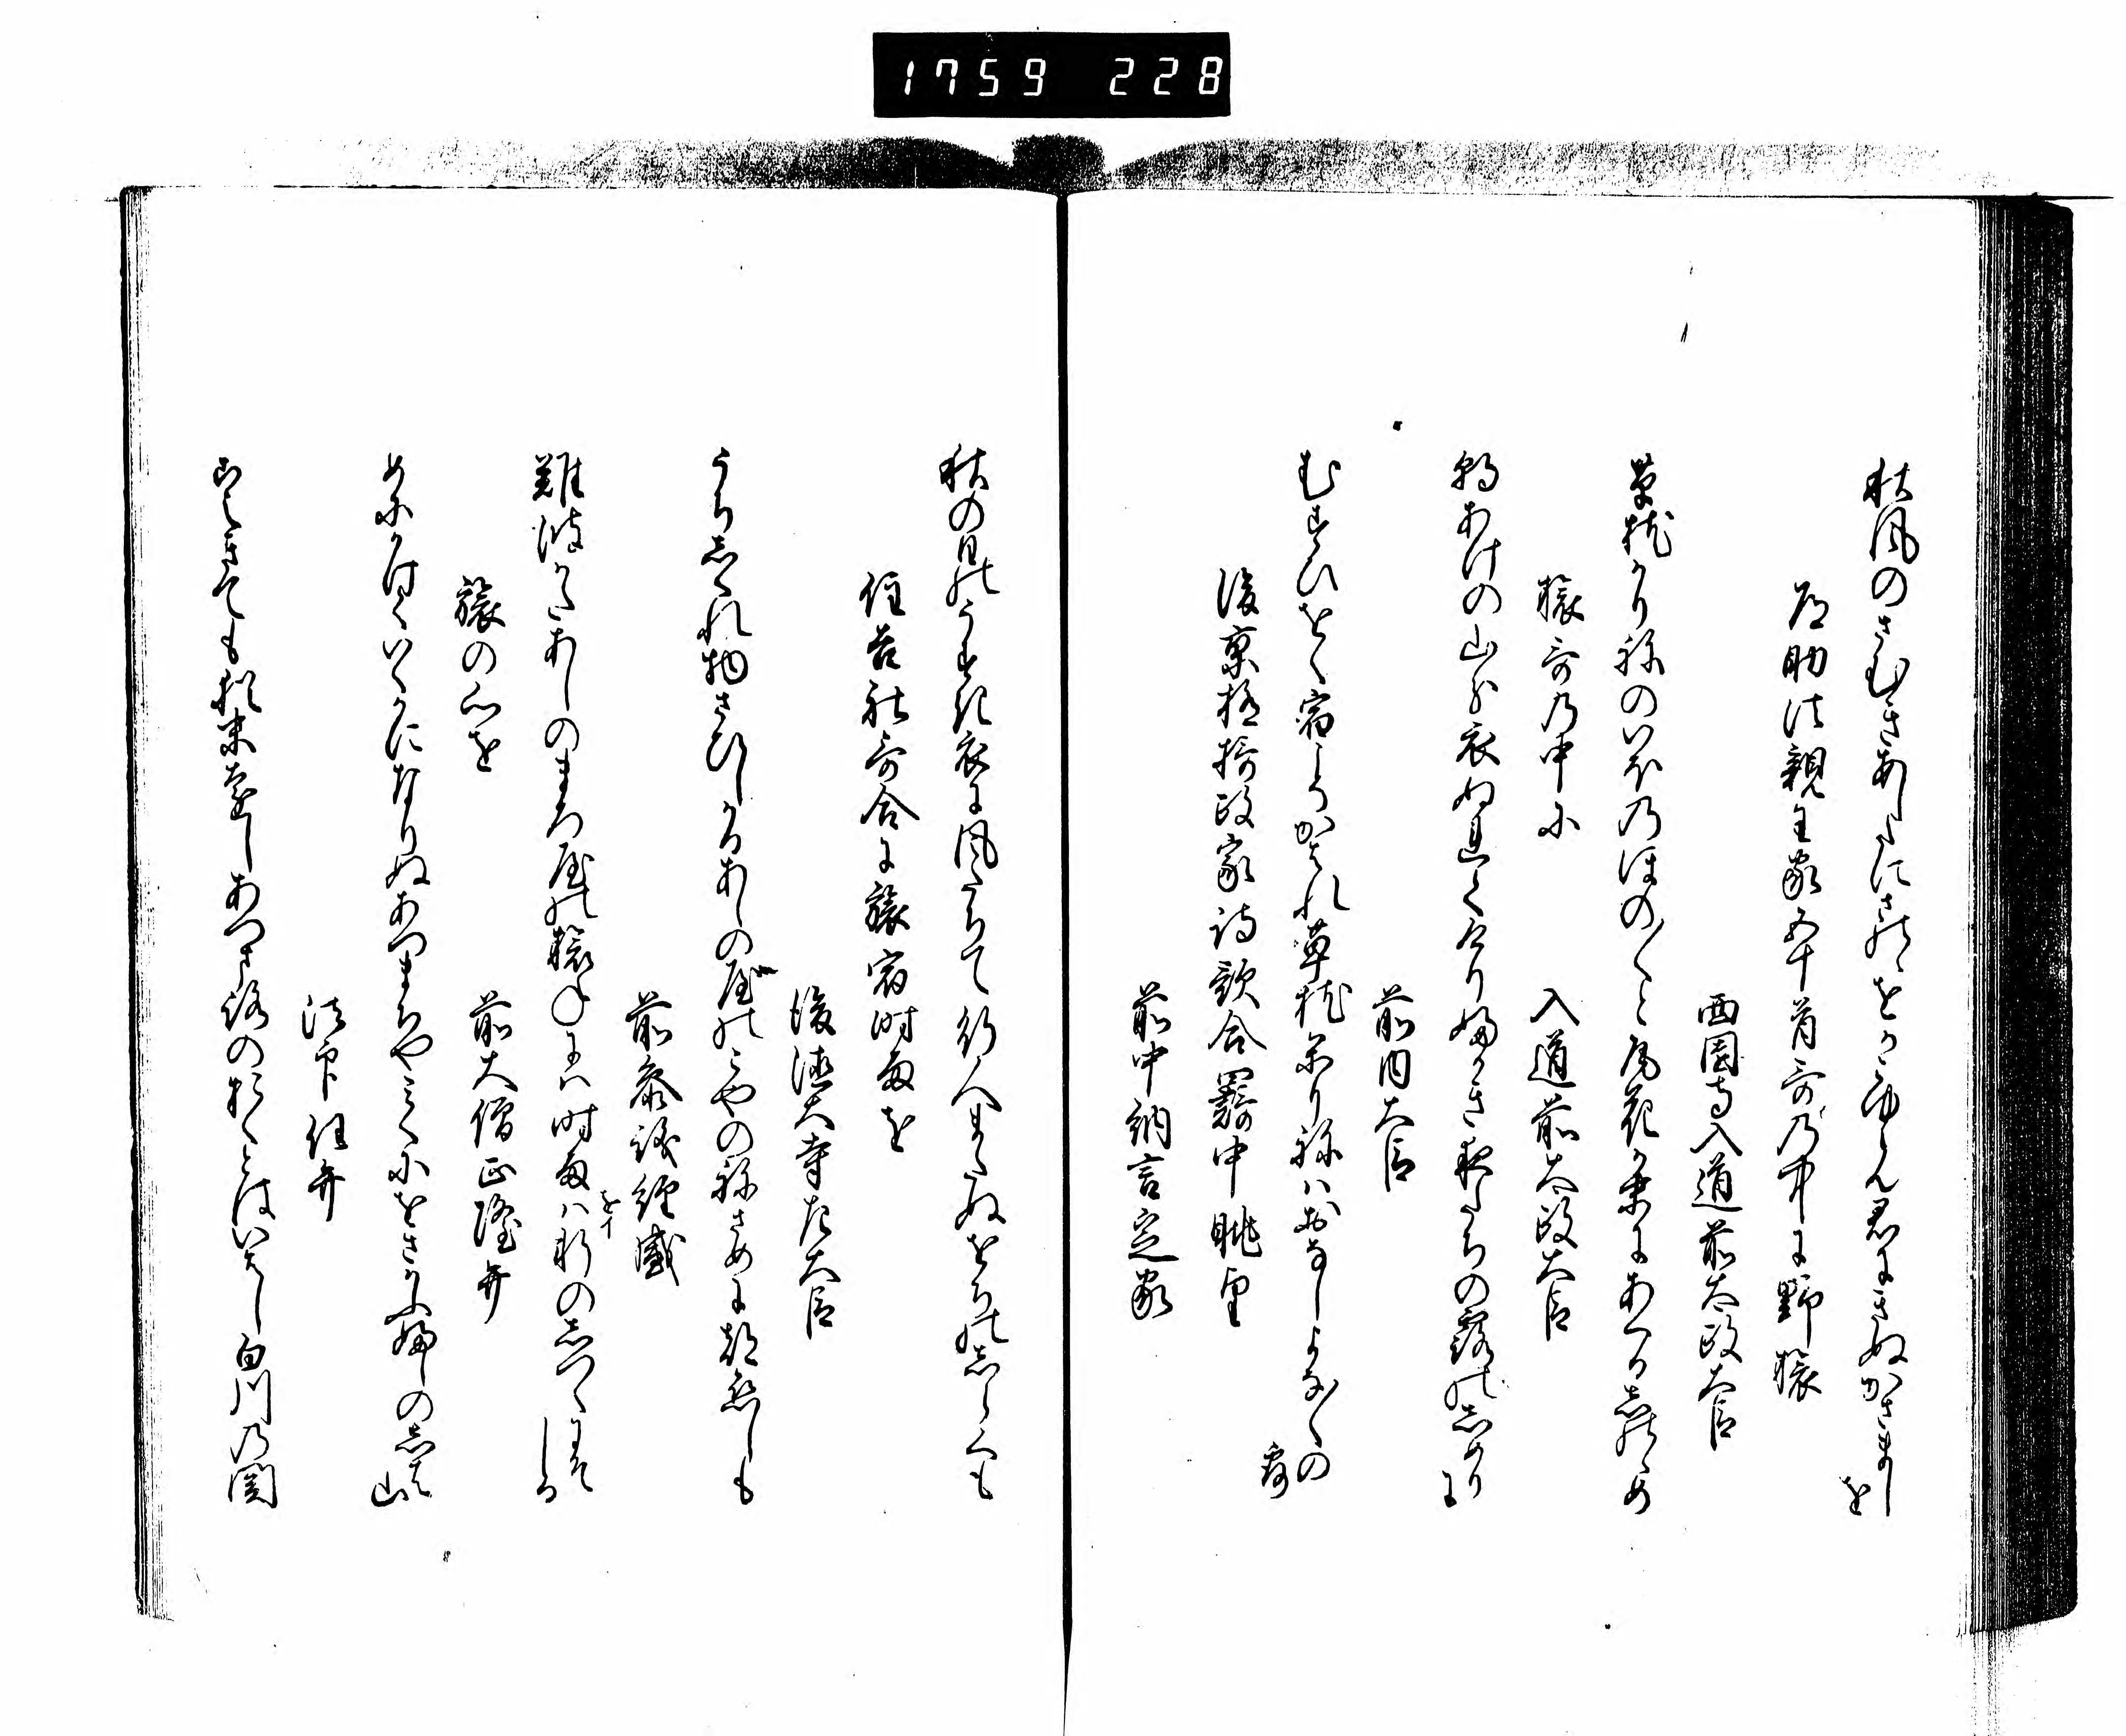 1759 228
秋風のさむきあしたにさのゝをかこゆらん君にきぬかさましを
道助法親王家五十首哥乃中に野旅
西園寺入道前太政大臣
草枕かり ねのいほのほの〱と尾花か末にあくるしのゝめ
旅哥乃中に
入道前太政大臣
朝あけの山分衣ぬれてけりふかき夜たちの露のしめりに
前内大臣
むすひをく宿こそかはれ草枕かりねはおなしよな〱の露
後京極摂政家詩歌合羇中眺望
前中納言定家
秋の日のうすき衣に風たちて行人またぬをちのしら雲
住吉社哥合に旅宿時雨を
後徳大寺左大臣
うちしくれ物さひしかるあしの屋のこやのねさめに都恋しも
前参議経盛
難波かたあしのまろ屋の旅ねには時雨は軒のしつくにそしる
をイ
旅の心を
前大僧正隆弁
めにかけていくかになりぬあつまちやみくにをさかふふしの芝山
法印任弁
こえきても猶末遠しあつまちの
おくとはいはし白川乃関